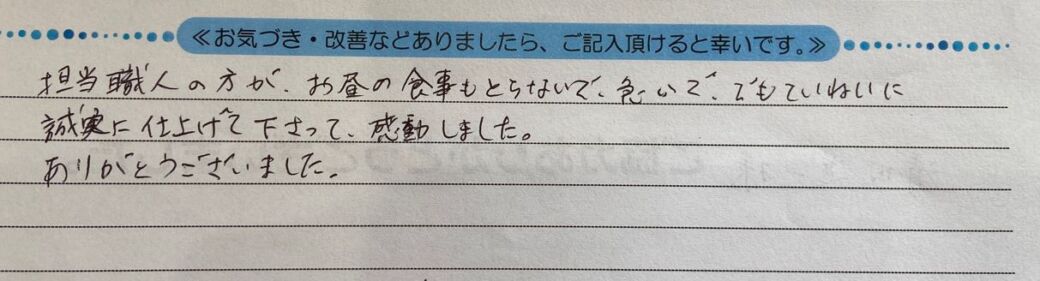 ≪お気づき・改善などありましたら、ご記入頂けると幸いです。≫
担当職人の方が、お昼の食事もとらないで、急いで、でもていねいに
誠実に仕上げて下さって、感動しました。
ありがとうございました。